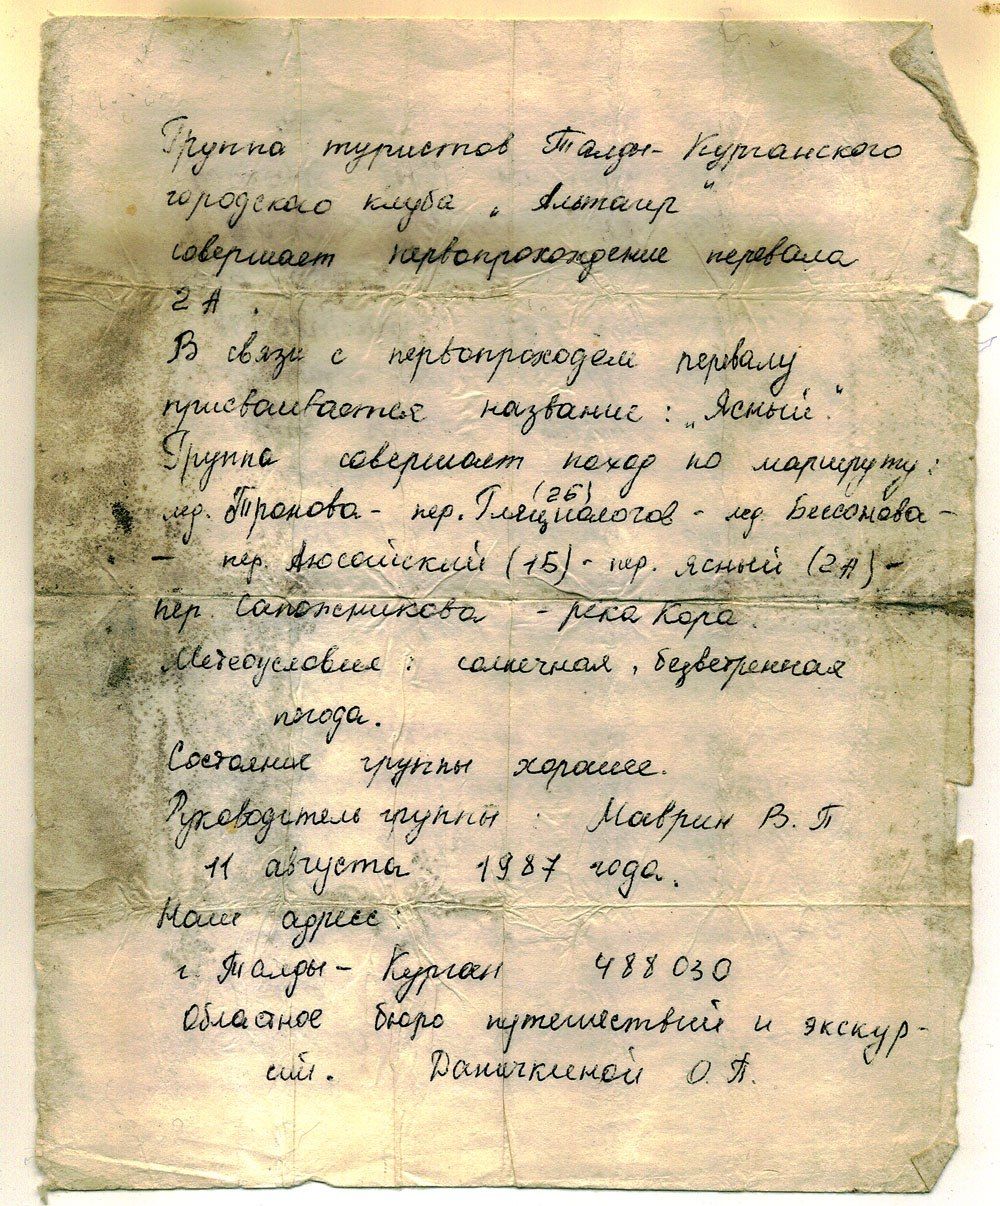 Группа туристов Талды-Курганского
городского клуба „Альтаир"
совершает первопрохождение перевала
2А.
В связи с первопроходом перевалу
присваивается название: „Ясный."
Группа совершает поход по маршруту:
лед. Тронова - пер. Гляциологов (2Б) - лед Бессонова -
- пер. Аюсайский (1Б) - пер. Ясный (2А) -
пер. Сапожникова - река Кора.
Метеоусловия: солнечная, безветренная
погода.
Состояние группы хорошее.
Руководитель группы: Маврин В. П
11 августа 1987 года.
Наш адресс:
г. Талды-Курган 488030
Обласное бюро путешествий и экскур-
сий. Даничкиной О. П.